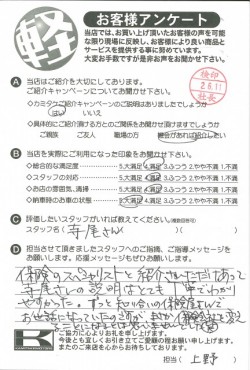 軽
お客様アンケート
当店では、お買い上げ頂いたお客様の声を可能
な限り現場に反映し、お客様により良い商品と
サービスを提供する事に努めています。
大変お手数ですが是非お声をお聞かせ下さい。
検印
2.6.11
社長
A 当店はご紹介を大切にしております。
ご紹介キャンペーンについてお聞かせ下さい。
◇カミタケご紹介キャンペーンのご説明はありましたでしょうか
はい いいえ
◇具体的にご紹介頂ける方とのご関係をお聞かせ頂けますでしょうか
ご親族 ご友人 職場の方 機会があれば紹介したい
B 当店を実際にご利用になった印象をお聞かせ下さい。
◇総合的な満足度 5.大満足 4.満足 3.ふつう 2.やや不満 1.不満
◇スタッフの対応 5.大満足 4.満足 3.ふつう 2.やや不満 1.不満
◇お店の雰囲気、清掃 5.大満足 4.満足 3.ふつう 2.やや不満 1.不満
◇納車時のお車の状態 5.大満足 4.満足 3.ふつう 2.やや不満 1.不満
C 評価したいスタッフがいれば教えてください。(複数回答可)
スタッフ名( 寺尾さん )
D 担当させて頂きましたスタッフへのご指摘、ご指導メッセージを
お願いします。応援メッセージもぜひお願いします。
保険のスペシャリストと紹介していただけあって
寺尾さんの説明はとても丁寧でわかり
やすかった。ずっと知り合いの保険屋さんで
お世話になっていたのですが、
ご協力に心よりお礼を申し上げます。
今後とも宜しくお引き立てご愛顧の程お願い申し上げます。
またのご来店を心からお待ちしております。
担当( 上野 )